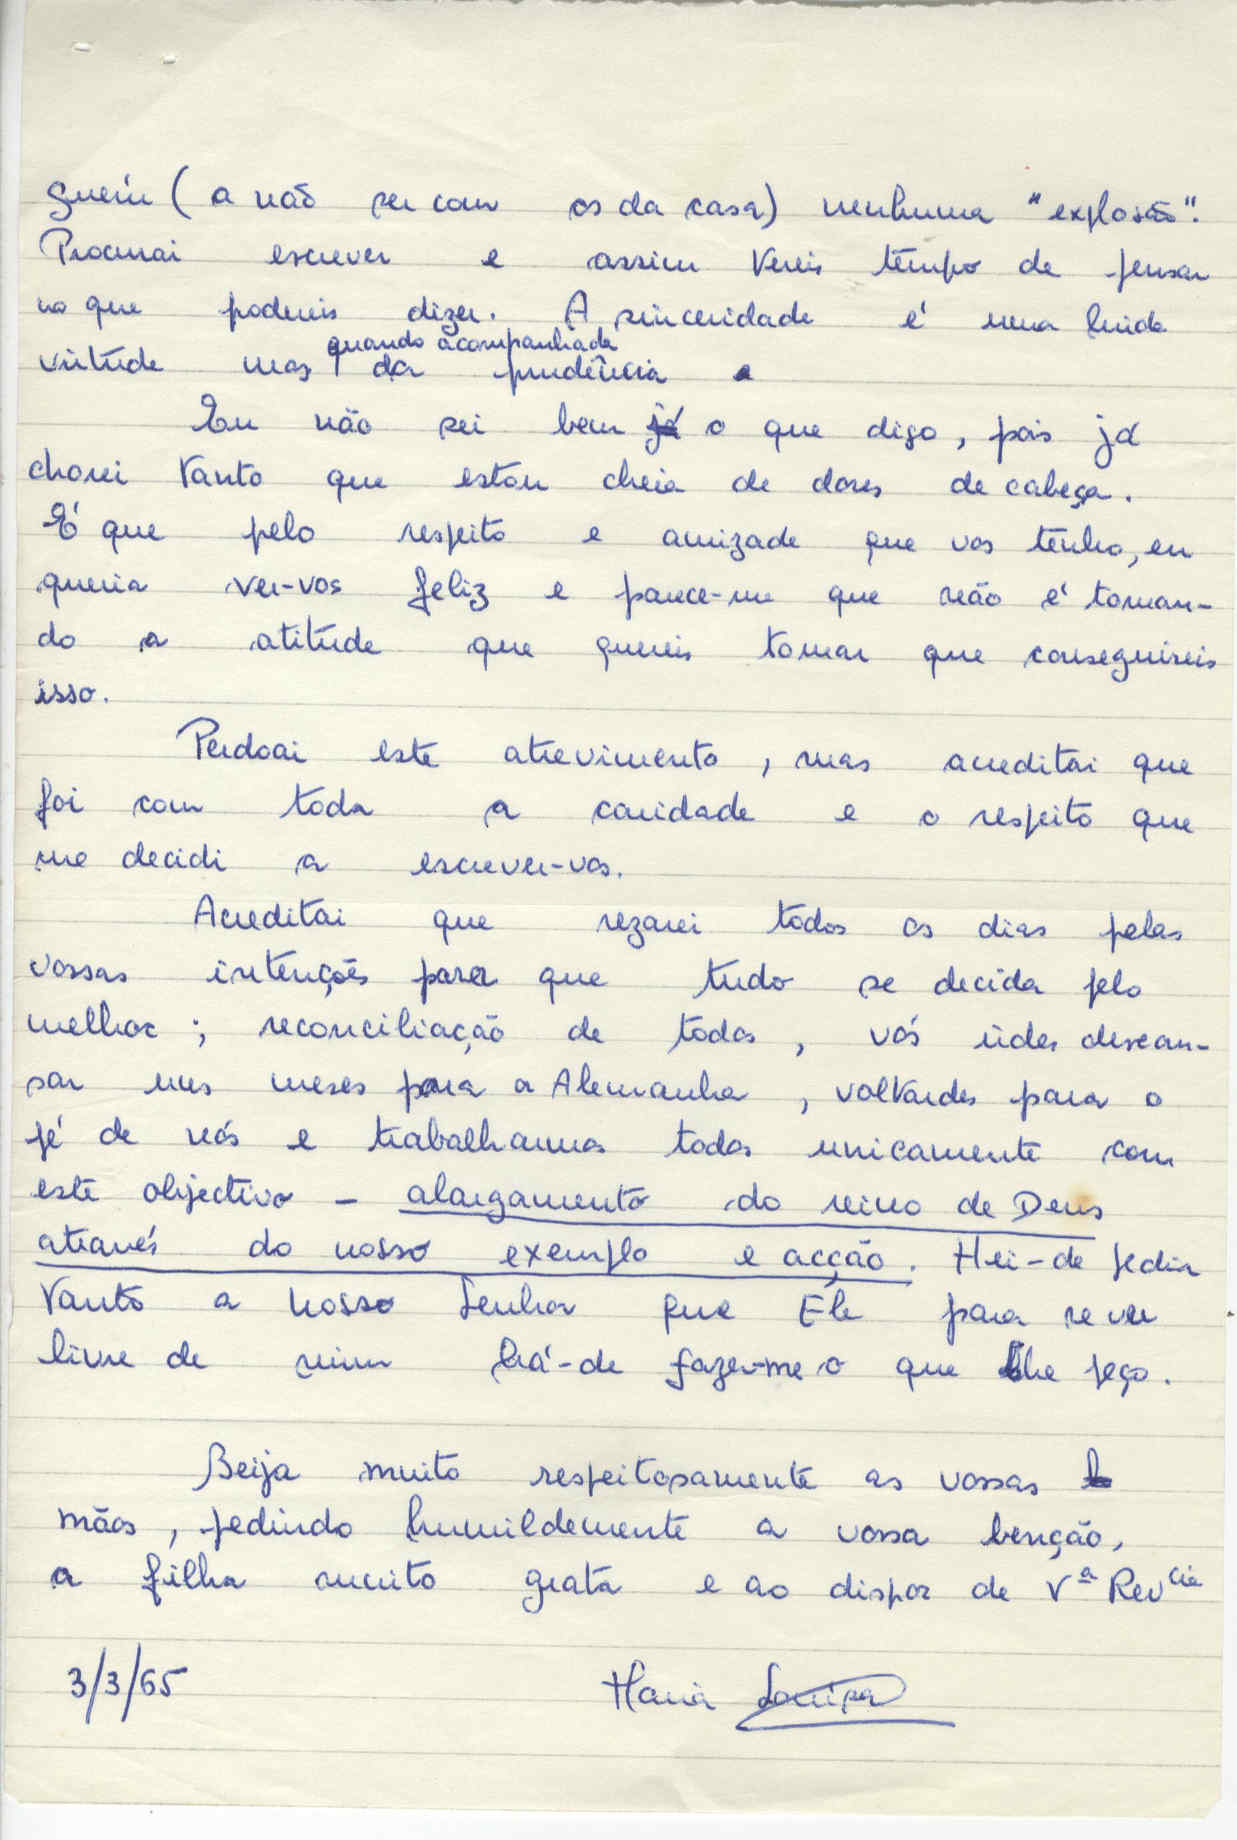 guém (a não ser com os da casa) nenhuma "explosão".
Procurai escrever e assim tereis tempo de pensar
no que podereis dizer. A sinceridade é uma linda
quando acompanhada
virtude mas da prudência
Eu não sei bem já o que digo, pois já
chorei tanto que estou cheia de dores de cabeça.
É que pelo respeito e amizade que vos tenho, eu
queria ver-vos feliz e parece-me que não é toman-
do a atitude que quereis tomar que conseguireis
isso.
Perdoai este atrevimento, mas acreditai que
foi com toda a caridade e o respeito que
me decidi a escrever-vos.
Acreditai que rezarei todos os dias pelas
vossas intenções para que tudo se decida pelo
melhor; reconciliação de todos, vós irdes descan-
sar uns meses para a Alemanha, voltardes para o
pé de nós e trabalharmos todos unicamente com
este objectivo - alargamento do reino de Deus
através do nosso exemplo e acção. Hei-de pedir
tanto a Nosso Senhor que Ele para se ver
livre de mim há-de fazer-me o que lhe peço.
Beija muito respeitosamente as vossas
mãos, pedindo humildemente a vossa benção,
a filha muito grata e ao dispor de Vª Revcia
3/3/65 Maria Louisa